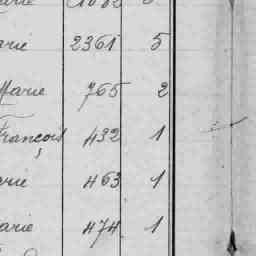 arie 2361 5
Marie 765 2
François 432 1
arie 463 1
arie 474 1